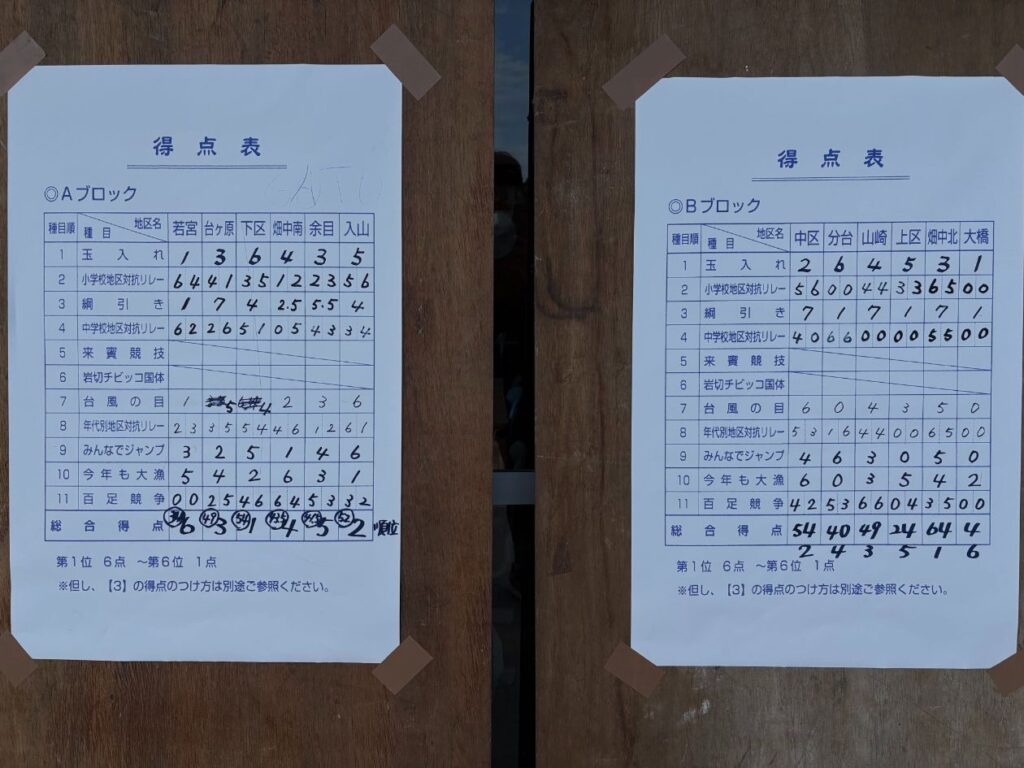 得点表
◎Aブロック
種目順 種目 地区名 若宮 台ヶ原 下区 畑中南 余目 入山
1 玉入れ 1 3 6 4 3 5
2 小学校地区対抗リレー 6 4 4 1 3 5 1 2 2 3 5 6
3 綱引き 1 7 4 2.5 5.5 4
4 中学校地区対抗リレー 6 2 2 6 5 1 0 5 4 3 3 4
5 来賓競技
6 岩切チビッコ国体
7 台風の目 1 5 4 2 3 6
8 年代別地区対抗リレー 2 3 3 5 5 4 4 6 1 2 6 1
9 みんなでジャンプ 3 2 5 1 4 6
10 今年も大漁 5 4 2 6 3 1
11 百足競争 0 0 2 5 4 6 6 4 5 3 3 2
総合得点 6 49 3 54 1 4 5 52 2 順位
第1位 6点 ～第6位 1点
※但し、【3】の得点のつけ方は別途ご参照ください。
得点表
◎Bブロック
種目順 種目 地区名 中区 分台 山崎 上区 畑中北 大橋
1 玉入れ 2 6 4 5 3 1
2 小学校地区対抗リレー 5 6 0 0 4 4 3 3 6 5 0 0
3 綱引き 7 1 7 1 7 1
4 中学校地区対抗リレー 4 0 6 6 0 0 0 0 5 5 0 0
5 来賓競技
6 岩切チビッコ国体
7 台風の目 6 0 4 3 5 0
8 年代別地区対抗リレー 5 3 1 6 4 4 0 0 6 5 0 0
9 みんなでジャンプ 4 6 3 0 5 0
10 今年も大漁 6 0 3 5 4 2
11 百足競争 4 2 5 3 6 6 0 4 3 5 0 0
総合得点 54 40 49 24 64 4
2 4 3 5 1 6
第1位 6点 ～第6位 1点
※但し、【3】の得点のつけ方は別途ご参照ください。